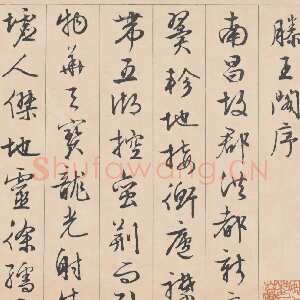 滕王阁序
南昌故郡洪都新
翼軫地接衡廬襟
帶五湖控蠻荆而引
物華天寶龍光射牛
墟人傑地靈徐孺
Shufawang.CN